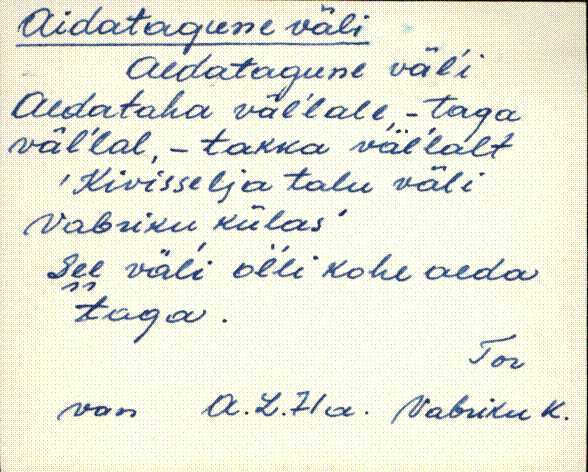 Aidatagune väli
Aedatagune väl'i
Aedataha väl'lale, - taga
väl'lal, - takka väl'lalt
'Kivisselja talu väli
Vabriku külas'
See väl'i ol'li kohe aeda
taga.
Tor
van A.L. 71a. Vabriku k.